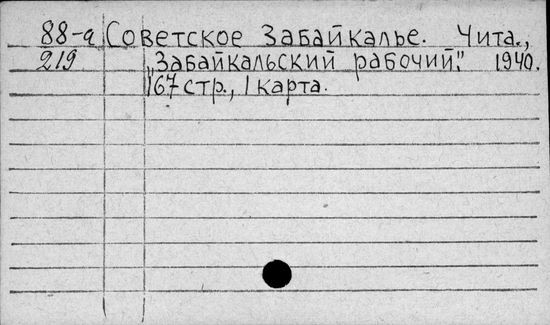 88-а Советское Забайкалье. Чита.,
219 „Забайкальский рабочий". 1940.
167 стр., 1 карта.